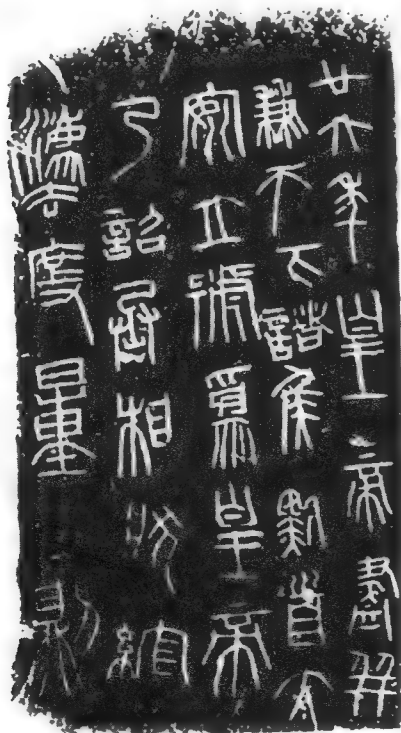 廿六年皇帝盡并
兼天下諸侯黔首大
安立號爲皇帝
乃詔丞相狀綰
灋度量則